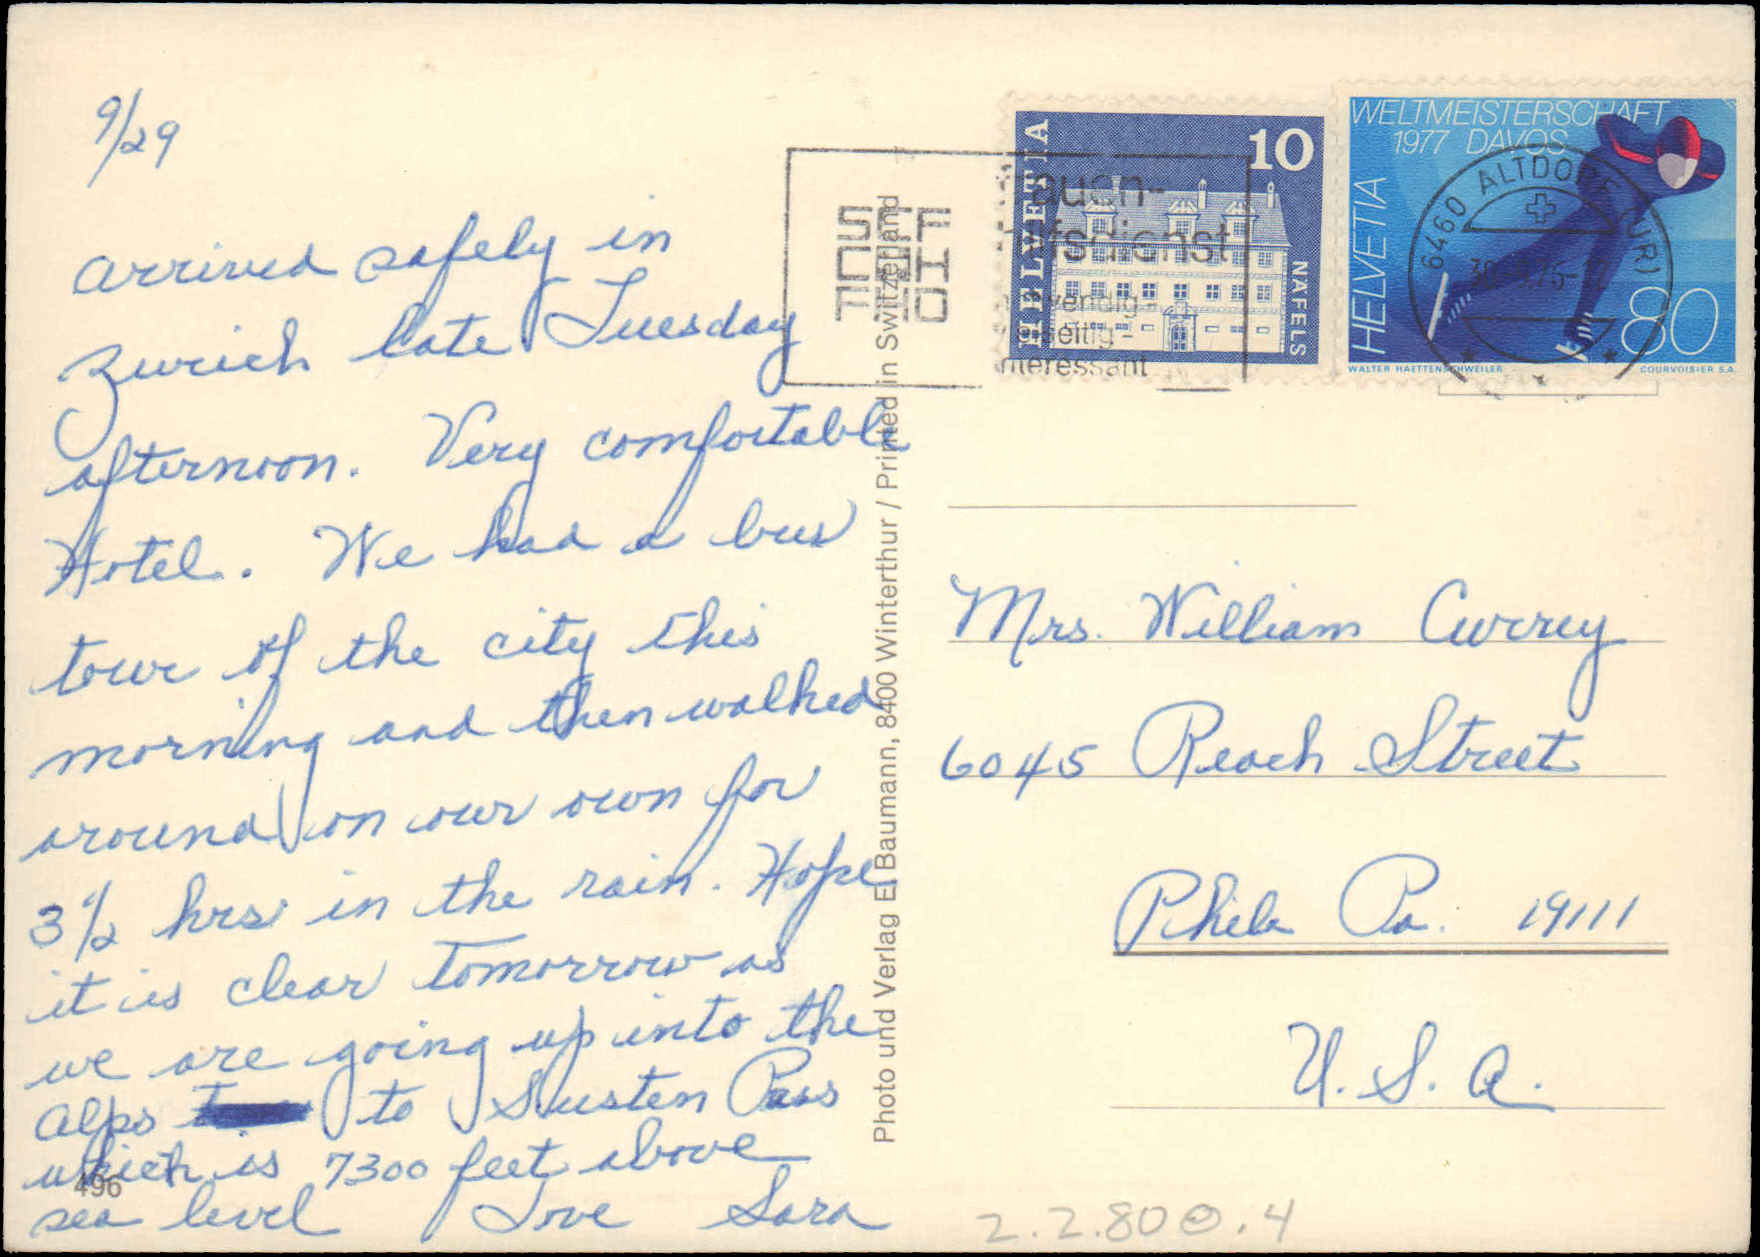 9/29
arrived safely in
Zurich late Tuesday
afternoon. Very comfortable
Hotel. We had a bus
tour of the city this
morning and then walked
around on our own for
3 1/2 hrs in the rain. Hope
it is clear tomorrow as
we are going up into the
alps to Susten Pass
which is 7300 feet above
sea level Love Sara
496
Photo und Verlag E. Baumann, 8400 Winterthur / Printed in Switzerland
auen-
lfsdienst
wendig-
seitig-
interessant
HELVETIA
10
NÄFELS
WELTMEISTERSCHAFT
1977 DAVOS
HELVETIA
80
WALTER HAETTENSCHWEILER
COURVOISIER S.A.
6460 ALTDORF (UR)
Mrs. William Currey
6045 Reach Street
Phila Pa. 19111
U.S.A.
2.2.80 .4